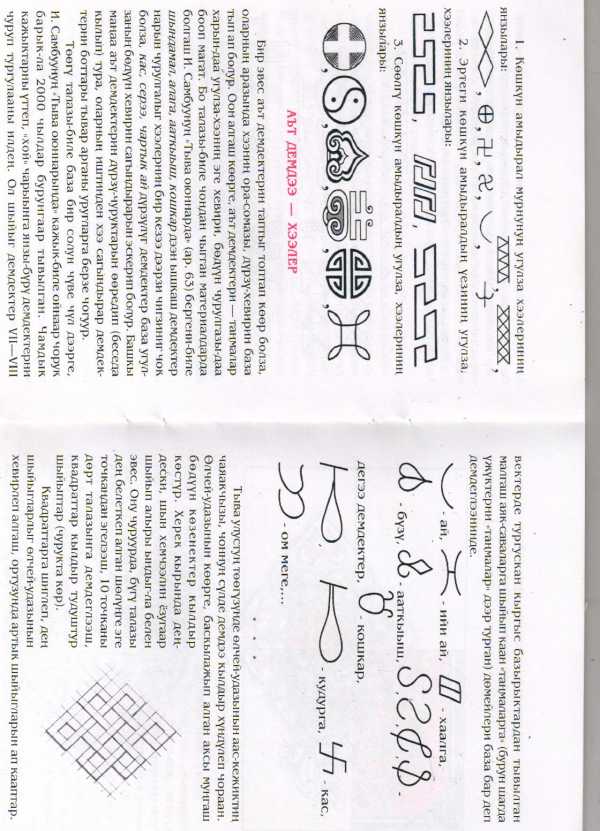 1. Көшкүн амыдырал мурнунуң угулза хээлериниң
янзылары:
2. Эртеги көшкүн амыдыралдың үезиниң, угулза,
хээлериниң янзылары:
3. Сөөлгү көшкүн амыдыралдың угулза, хээлериниң
янзылары:
АЪТ ДЕМДЭЭ — ХЭЭЛЕР
Бир эвес аът демдектерин таптыг топтап көөр болза,
оларның аразында хээниң ора-сомазы, дүрзү-хевирин база
тып ап болур. Оон алгаш көөрге, аът демдектери — таңмалар
харын-даа угулза-хээниң эге хевири, бөдүүн чурулгазы-даа
бооп магат. Бо талазы-биле чоңдан чыгган материалдарда
болгаш И. Самбуунуң «Тыва оюннарда» (ар. 63) бергени-биле
шындамал, алага, ааткыыш, кошкар дээн ышкаш демдектер
нарын чурулгалыг хээлерниң бир кезээ дээрзи чигзиниг чок
болза, кас, серээ, чартык ай дүрзүлүг демдектер база угул-
заның бөдүүн хевириң сагындырарын эскерип болур. Башкы
маңаа аът демдектерин дүрзү-чуруктарын өөредип (беседа
кылып) тура, оларның иштинден хээ сагындырар демдек-
терни боттары тывар арганы уругларга берзе чогуур.
Төөгү талазы-биле база бир солун чүве чүл дээрге,
И. Самбуунуң «Тыва оюннарында» кажык-биле ойнаар чорук
барык-ла 2000 чылдар бурунгаар тывылган. Чамдык
кажыктарны үттеп, «хой» чарыынга янзы-бүрү демдектерни
чуруп туртулааны илден. Ол шыйыг демдектер VII—VIII
вектерде тургускан кыргыс базырыктардан тывылган
малгаш аяк-саваларга шыйып каан «таңмаларга» (бурун шагда
үжүктерни «таңмалар» дээр турган) дөмейлери база бар деп
демдеглээнинде.
- ай, - ийи ай, - хаалга,
- бүзү, - ааткыыш, -
дегээ демдектер, - кошкар,
- кудурга, - кас,
- ом меге,...
Тыва улустуң төөгүзүнде өлчей-удазының аас-кежиктиң
чаяакчызы, чоннуң сүлде демдээ кылдыр хүндүлеп чораан.
Өлчей-удазынын көөрге, баскылажып алган аксы мунгаш
бөдүүн көзенектер кылдыр
көстүр. Херек кырында дең-
дески, шын хемчээлин ёзугаар
шыйып алыры ындыг-ла белен
эвес. Ону чуруурда, бүгү талазы
дең белеткеп алган шөлүнге эге
точкаңдан эгелээш, 10 точканы
дөрт талазынга демдеглээш,
квадраттар кылдыр тудуштур
шыйыптар (чурукта көр).
Квадраттарга шиглеп, дең
шыйыгларлыг өлчей-удазының
хевирлеп алгаш, ортузунда артык шыйыгларын ап кааптар.